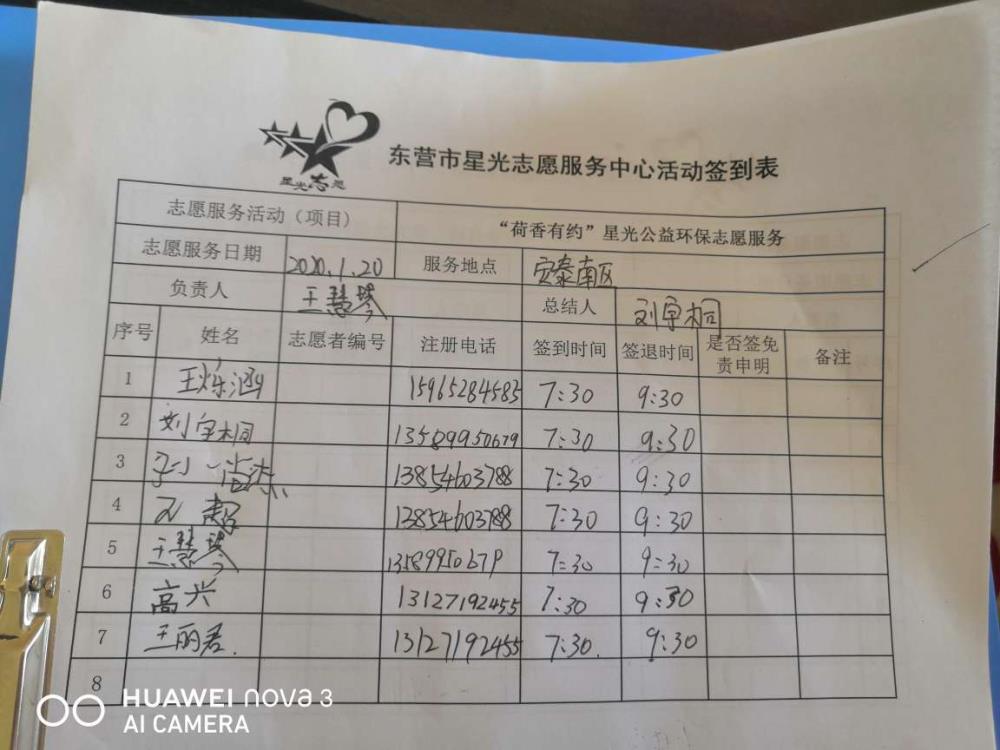 星光志愿
东营市星光志愿服务中心活动签到表
志愿服务活动（项目） “荷香有约”星光公益环保志愿服务
志愿服务日期 2020.1.20 服务地点 安泰南区
负责人 王慧琴 总结人 刘宇桐
序号 姓名 志愿者编号 注册电话 签到时间 签退时间 是否签免责申明 备注
1 王烁涵 15965284583 7:30 9:30
2 刘宇桐 13589950679 7:30 9:30
3 13854603788 7:30 9:30
4 超 13854603788 7:30 9:30
5 王慧琴 13589950679 7:30 9:30
6 高兴 13127192455 7:30 9:30
7 王丽君. 13127192455 7:30. 9:30
8
HUAWEI nova 3
AI CAMERA